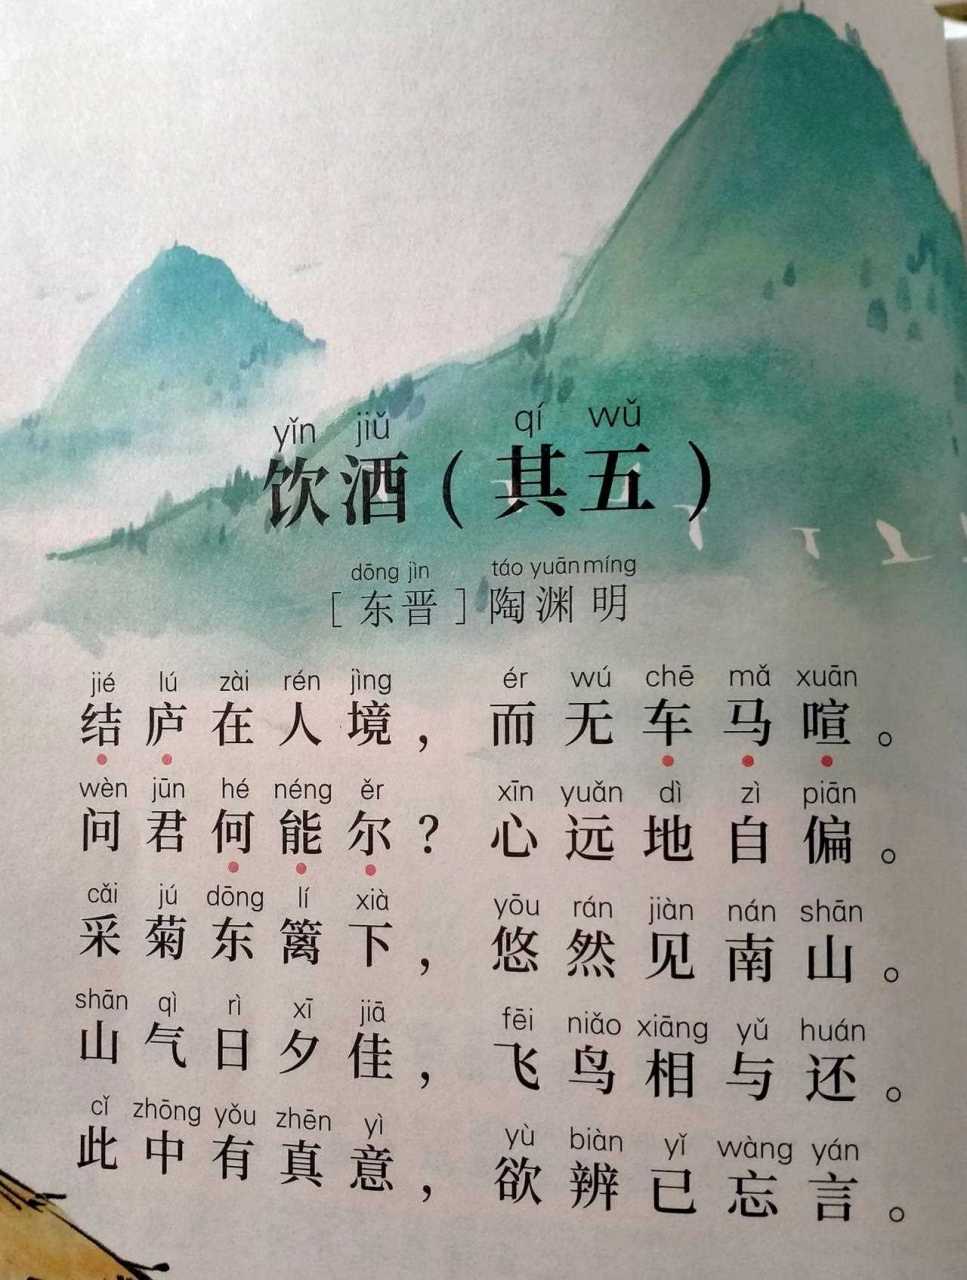 yǐn jiǔ qí wǔ
饮酒(其五)
dōng jìn táo yuān míng
[东晋]陶渊明
jié lú zài rén jìng ér wú chē mǎ xuān
结庐在人境，而无车马喧。
wèn jūn hé néng ěr xīn yuǎn dì zì piān
问君何能尔？心远地自偏。
cǎi jú dōng lí xià yōu rán jiàn nán shān
采菊东篱下，悠然见南山。
shān qì rì xī jiā fēi niǎo xiāng yǔ huán
山气日夕佳，飞鸟相与还。
cǐ zhōng yǒu zhēn yì yù biàn yǐ wàng yán
此中有真意，欲辨已忘言。